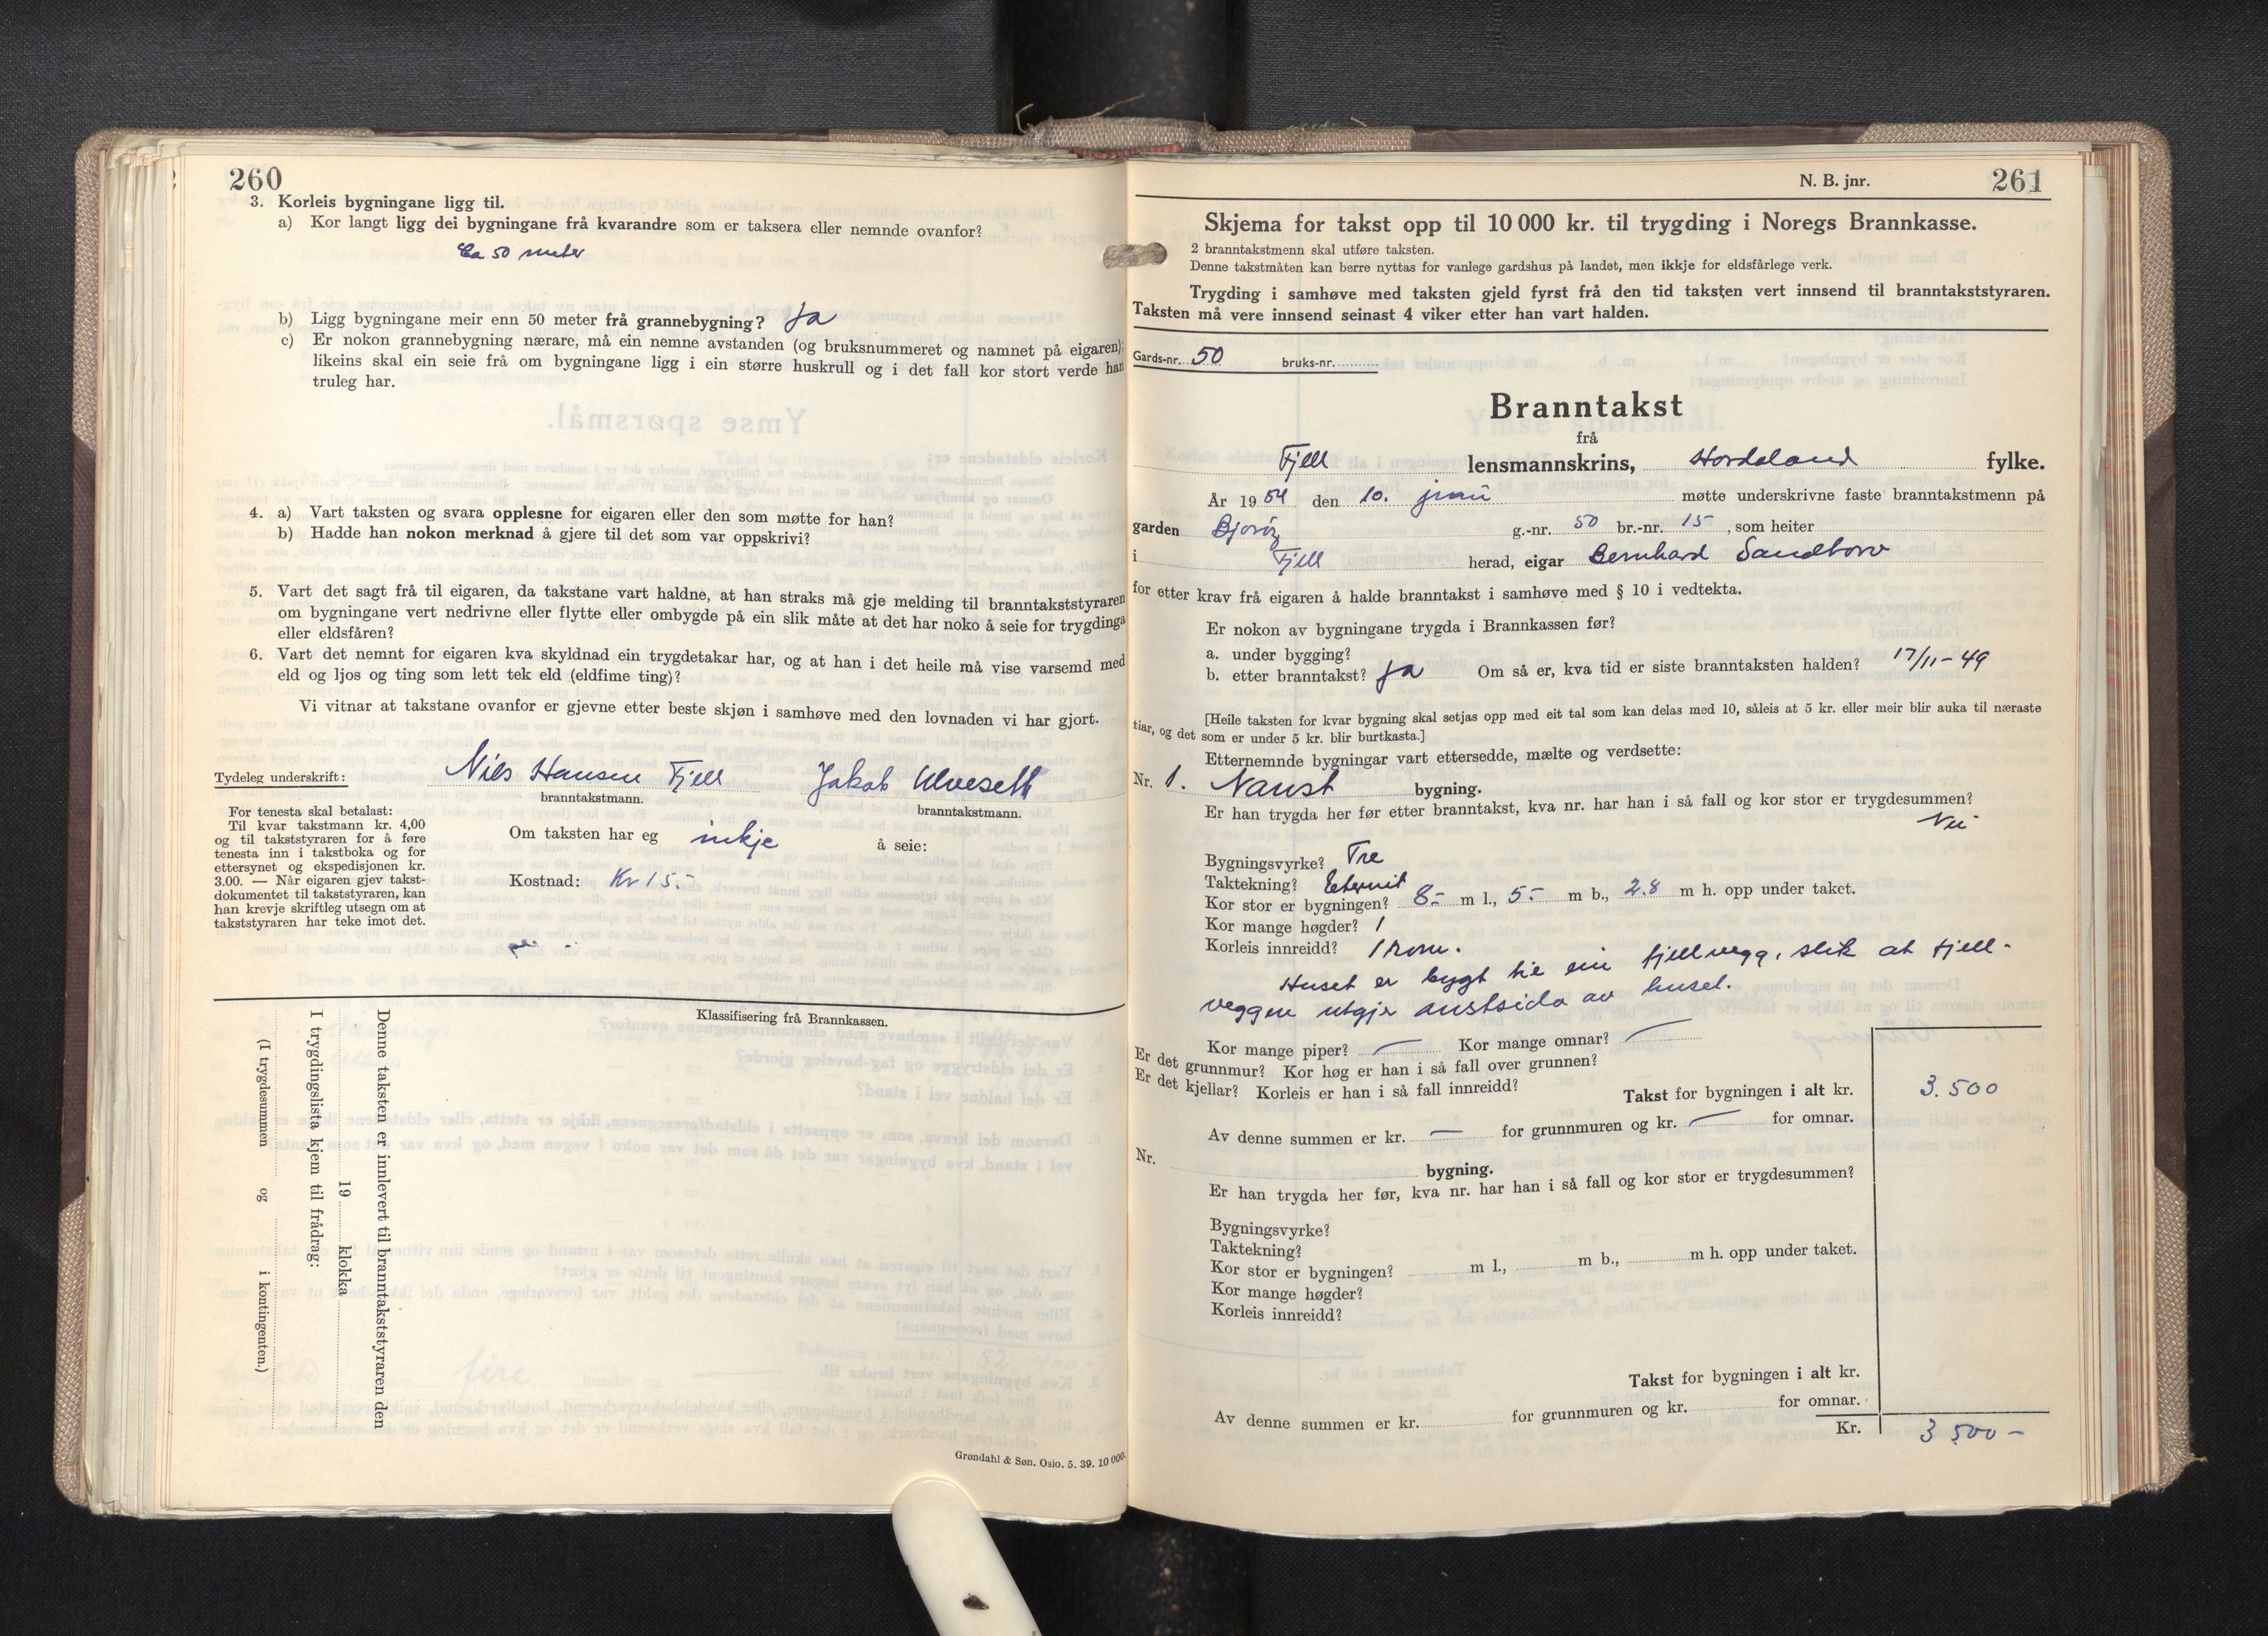 260
3. Korleis bygningane ligg til.
a) Kor langt ligg dei bygningane frå kvarandre som er taksera eller nemnde ovanfor?
Ca 50 meter
b) Ligg bygningane meir enn 50 meter frå grannebygning? Ja
c) Er nokon grannebygning nærare, må ein nemne avstanden (og bruksnummeret og namnet på eigaren);
likeins skal ein seie frå om bygningane ligg i ein større huskrull og i det fall kor stort verde han
truleg har.
4. a) Vart taksten og svara opplesne for eigaren eller den som møtte for han?
b) Hadde han nokon merknad å gjere til det som var oppskrivi?
5. Vart det sagt frå til eigaren, da takstane vart haldne, at han straks må gje melding til branntakststyraren
om bygningane vert nedrivne eller flytte eller ombygde på ein slik måte at det har noko å seie for trygdinga
eller eldsfåren?
6. Vart det nemnt for eigaren kva skyldnad ein trygdetakar har, og at han i det heile må vise varsemd med
eld og ljos og ting som lett tek eld (eldfime ting)?
Vi vitnar at takstane ovanfor er gjevne etter beste skjøn i samhøve med den lovnaden vi har gjort.
Tydeleg underskrift: Nils Hansen Fjell Jakob Ulveseth
branntakstmann. branntakstmann.
For tenesta skal betalast:
Til kvar takstmann kr. 4,00
og til takststyraren for å føre
tenesta inn i takstboka og for
ettersynet og ekspedisjonen kr.
3.00. — Når eigaren gjev takst-
dokumentet til takststyraren, kan
han krevje skriftleg utsegn om at
takststyraren har teke imot det.
Om taksten har eg inkje å seie:
Kostnad: Kr 15.-
Klassifisering frå Brannkassen.
Denne taksten er innlevert til branntakststyraren den
19 klokka
I trygdingslista kjem til frådrag:
(I trygdesummen og i kontingenten.)
Grøndahl & Søn. Oslo. 5. 39. 10 000.
N. B. jnr. 261
Skjema for takst opp til 10 000 kr. til trygding i Noregs Brannkasse.
2 branntakstmenn skal utføre taksten.
Denne takstmåten kan berre nyttas for vanlege gardshus på landet, men ikkje for eldsfårlege verk.
Trygding i samhøve med taksten gjeld fyrst frå den tid taksten vert innsend til branntakststyraren.
Taksten må vere innsend seinast 4 viker etter han vart halden.
Gards-nr. 50 bruks-nr.
Branntakst
frå
Fjell lensmannskrins, Hordaland fylke.
År 1954 den 10. juni møtte underskrivne faste branntakstmenn på
garden Bjorøy g.-nr. 50 br.-nr. 15, som heiter
i Fjell herad, eigar Bernhard Sandtorv
for etter krav frå eigaren å halde branntakst i samhøve med § 10 i vedtekta.
Er nokon av bygningane trygda i Brannkassen før?
a. under bygging?
b. etter branntakst? Ja Om så er, kva tid er siste branntaksten halden? 17/11-49
[Heile taksten for kvar bygning skal setjas opp med eit tal som kan delas med 10, såleis at 5 kr. eller meir blir auka til næraste
tiar, og det som er under 5 kr. blir burtkasta.]
Etternemnde bygningar vart ettersedde, mælte og verdsette:
Nr. 1. Naust bygning.
Er han trygda her før etter branntakst, kva nr. har han i så fall og kor stor er trygdesummen?
Nei
Bygningsvyrke? Tre
Taktekning? Eternit
Kor stor er bygningen? 8.- m l., 5.- m b., 2.8 m h. opp under taket.
Kor mange høgder? 1
Korleis innreidd? 1 rom.
Huset er bygt til ein fjellvegg, slik at fjell-
veggen utgjer austsida av huset.
Kor mange piper? — Kor mange omnar? —
Er det grunnmur? Kor høg er han i så fall over grunnen?
Er det kjellar? Korleis er han i så fall innreidd?
Takst for bygningen i alt kr. 3.500
Av denne summen er kr. — for grunnmuren og kr. — for omnar.
Nr. bygning.
Er han trygda her før, kva nr. har han i så fall og kor stor er trygdesummen?
Bygningsvyrke?
Taktekning?
Kor stor er bygningen? m l., m b., m h. opp under taket.
Kor mange høgder?
Korleis innreidd?
Takst for bygningen i alt kr.
Av denne summen er kr. for grunnmuren og kr. for omnar.
Kr. 3 500 -